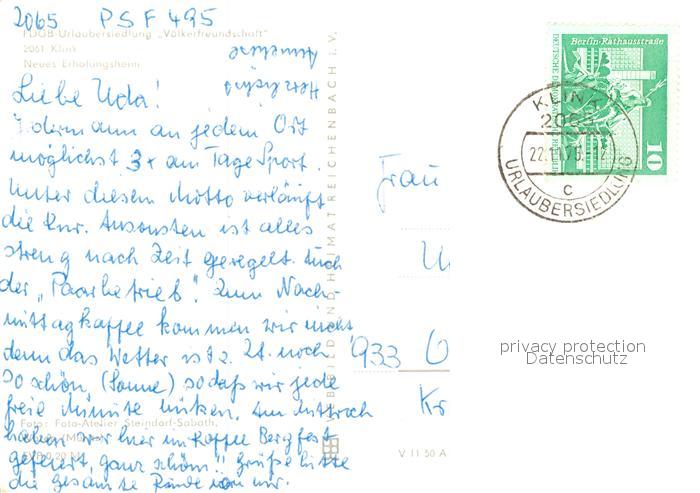 2065 PSF 495
FDGB-Urlaubersiedlung „Völkerfreundschaft"
2061 Klink
Neues Erholungsheim
Herzliche
Liebe Uda!
Jedermann an jedem Ort
möglichst 3x am Tage Sport.
Unter diesem Motto verläuft
die Kur. Ansonsten ist alles
streng nach Zeit geregelt. Auch
der „Paarbetrieb". Zum Nach-
mittagkaffee kommen wir nicht
denn das Wetter ist z. Zt. noch
so schön, (Sonne) sodaß wir jede
freie Minute nutzen. Am Mittwoch
haben wir hier im Kaffee Bergfest
gefeiert, ganz schön!! Grüße bitte
die gesamte Runde von mir.
Foto: Foto-Atelier Steindorf-Sabath,
EVP 0,20 M
BILD UND HEIMAT REICHENBACH i. V.
V 11 50 A
Berlin-Rathausstraße
10
KLINK
2065
22.11.76.
c
URLAUBERSIEDLUNG
Frau
U
933 O
Kr
privacy protection
Datenschutz